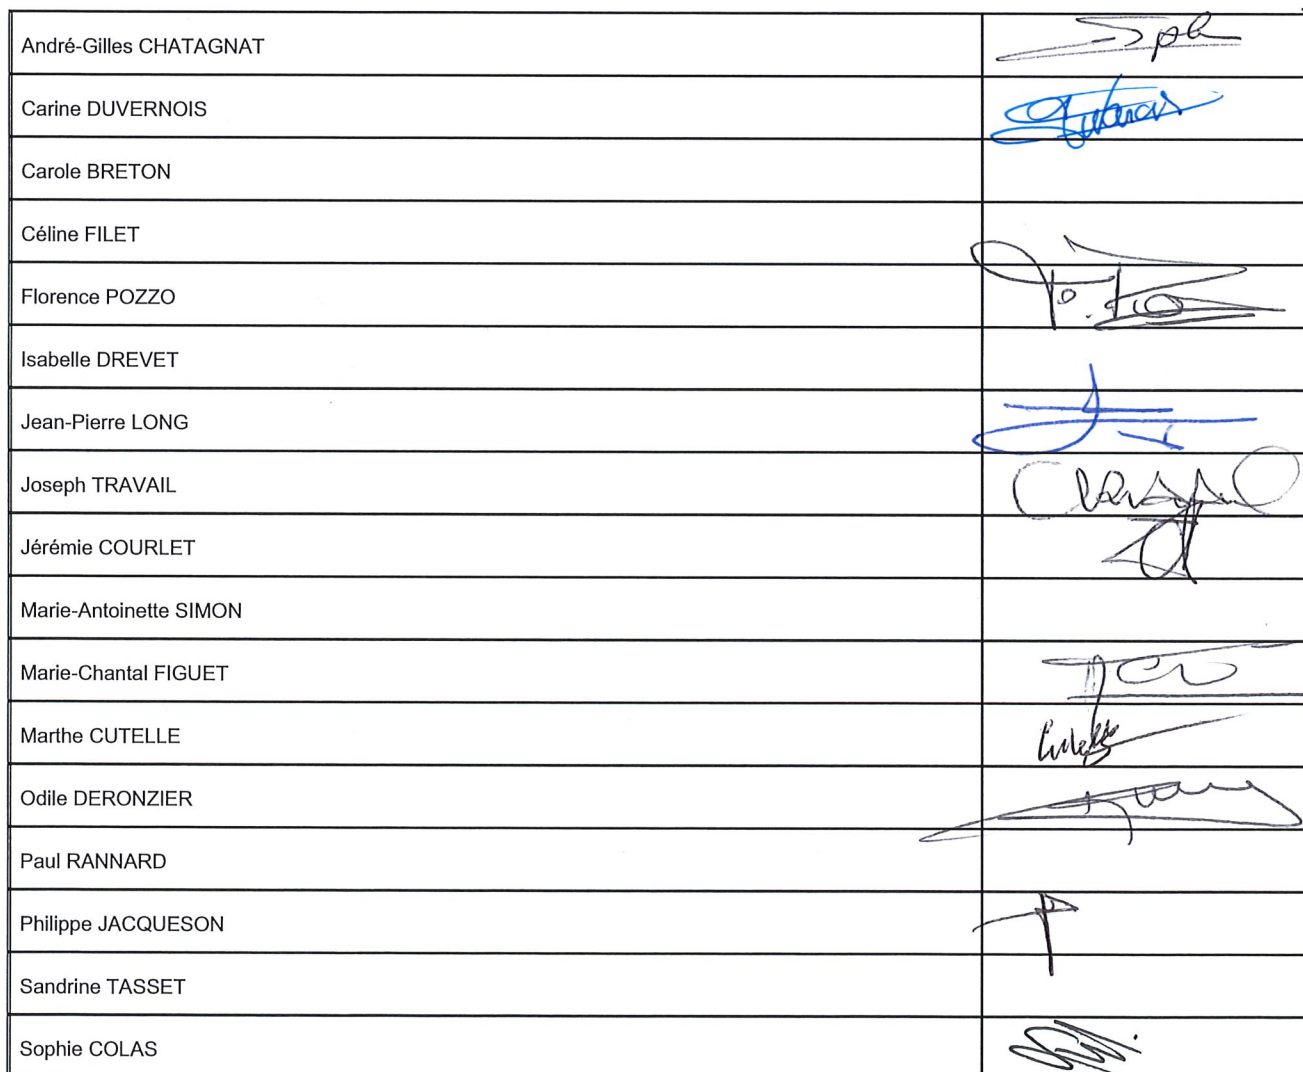 André-Gilles CHATAGNAT
Carine DUVERNOIS
Carole BRETON
Céline FILET
Florence POZZO
Isabelle DREVET
Jean-Pierre LONG
Joseph TRAVAIL
Jérémie COURLET
Marie-Antoinette SIMON
Marie-Chantal FIGUET
Marthe CUTELLE
Odile DERONZIER
Paul RANNARD
Philippe JACQUESON
Sandrine TASSET
Sophie COLAS